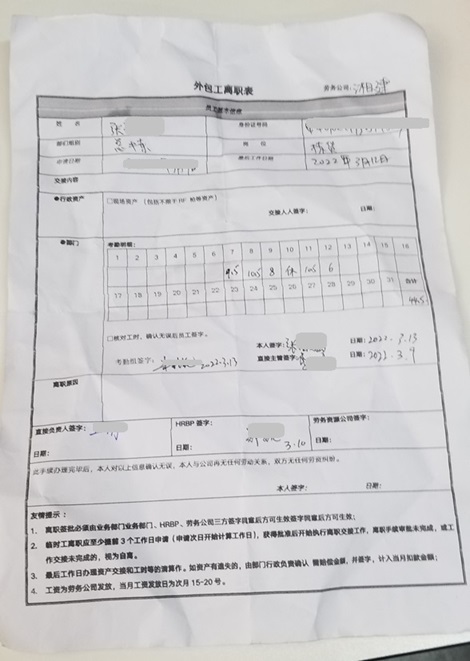 外包工离职表
劳务公司：湘沣
员工基本信息
姓 名 张
身份证号码
部门/组别
岗 位 拣货
申请日期
最后工作日期 2022年3月12日
交接内容
●行政资产
交接人签字：
日期：
●部门
考勤明细：
1 2 3 4 5 6 7 8 9 10 11 12 13 14 15 16
9.5 10.5 8 休 10.5 6
17 18 19 20 21 22 23 24 25 26 27 28 29 30 31 合计
44.5
□核对工时，确认无误后员工签字。
本人签字：张
日期：2022.3.13
考勤组签字：
2022.3.13
直接主管签字：
日期：2022.3.9
离职原因
直接负责人签字：
HRBP 签字：
劳务资源公司签字：
日期：
日期：
3.10
日期：
此手续办理完毕后，本人对以上信息确认无误，本人与公司再无任何劳动关系，双方无任何劳资纠纷。
本人签字：
日期：
友情提示：
1. 离职签批必须由业务部门业务部门、HRBP、劳务公司三方签字同意后方可生效签字同意后方可生效；
2. 临时工离职应至少提前 3 个工作日申请（申请次日开始计算工作日），获得批准后开始执行离职交接工作，离职手续审批未完成，或工
作交接未完成的，视为自离。
3. 最后工作日办理资产交接和工时等的清算作。如资产有遗失的，由部门行政负责确认 需赔偿金额，并签字，计入当月扣款金额；
4. 工资为劳务公司发放，当月工资发放日为次月 15-20 号。